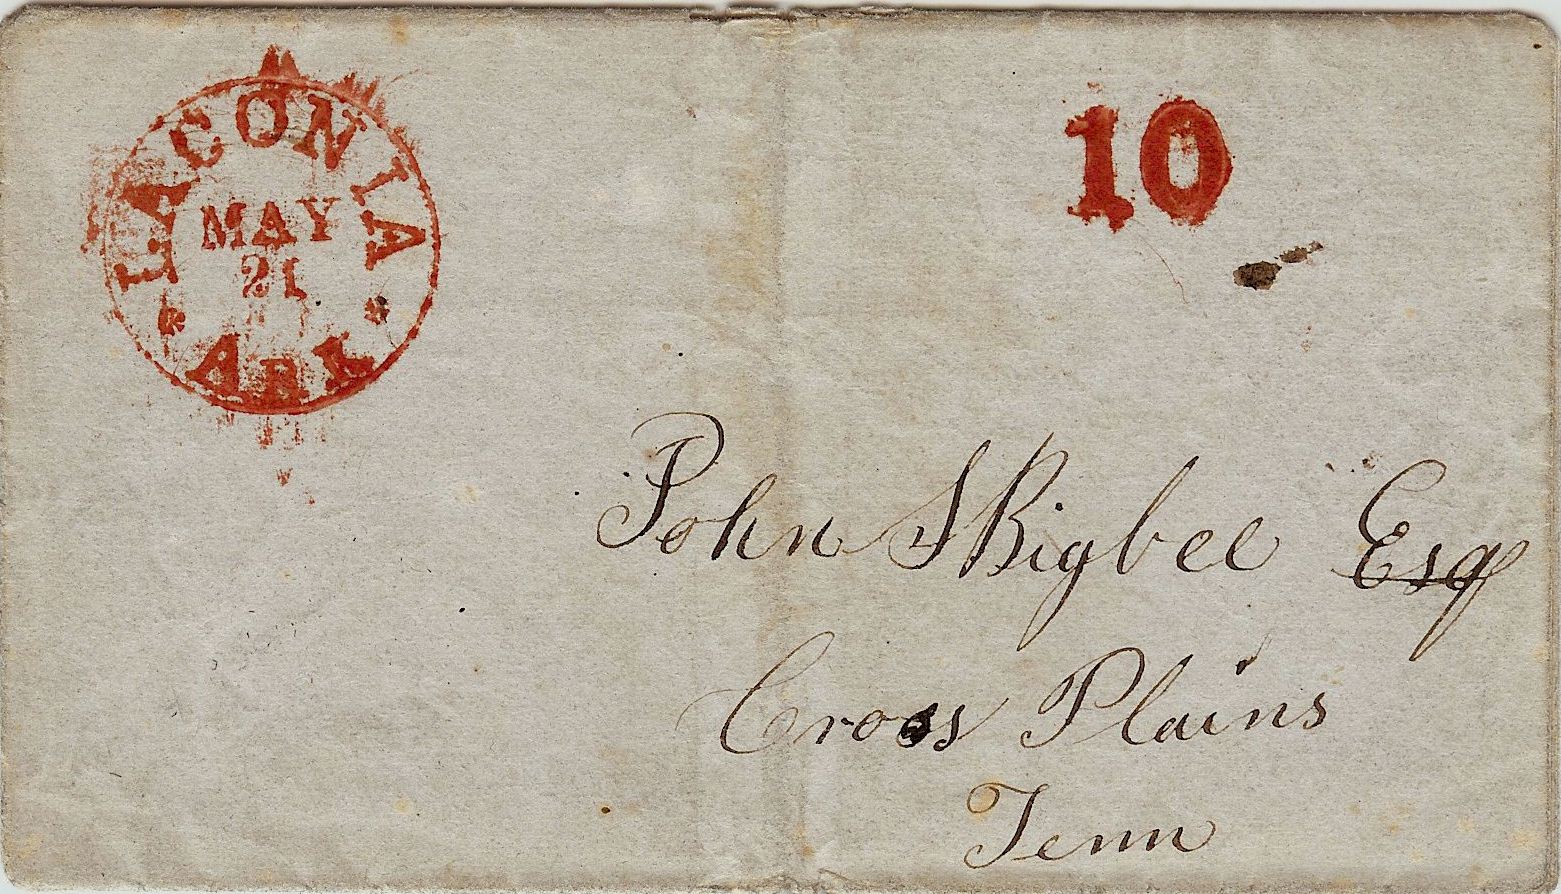 LACONIA
MAY
21
ARK
10
John S Bigbee Esq
Cross Plains
Tenn